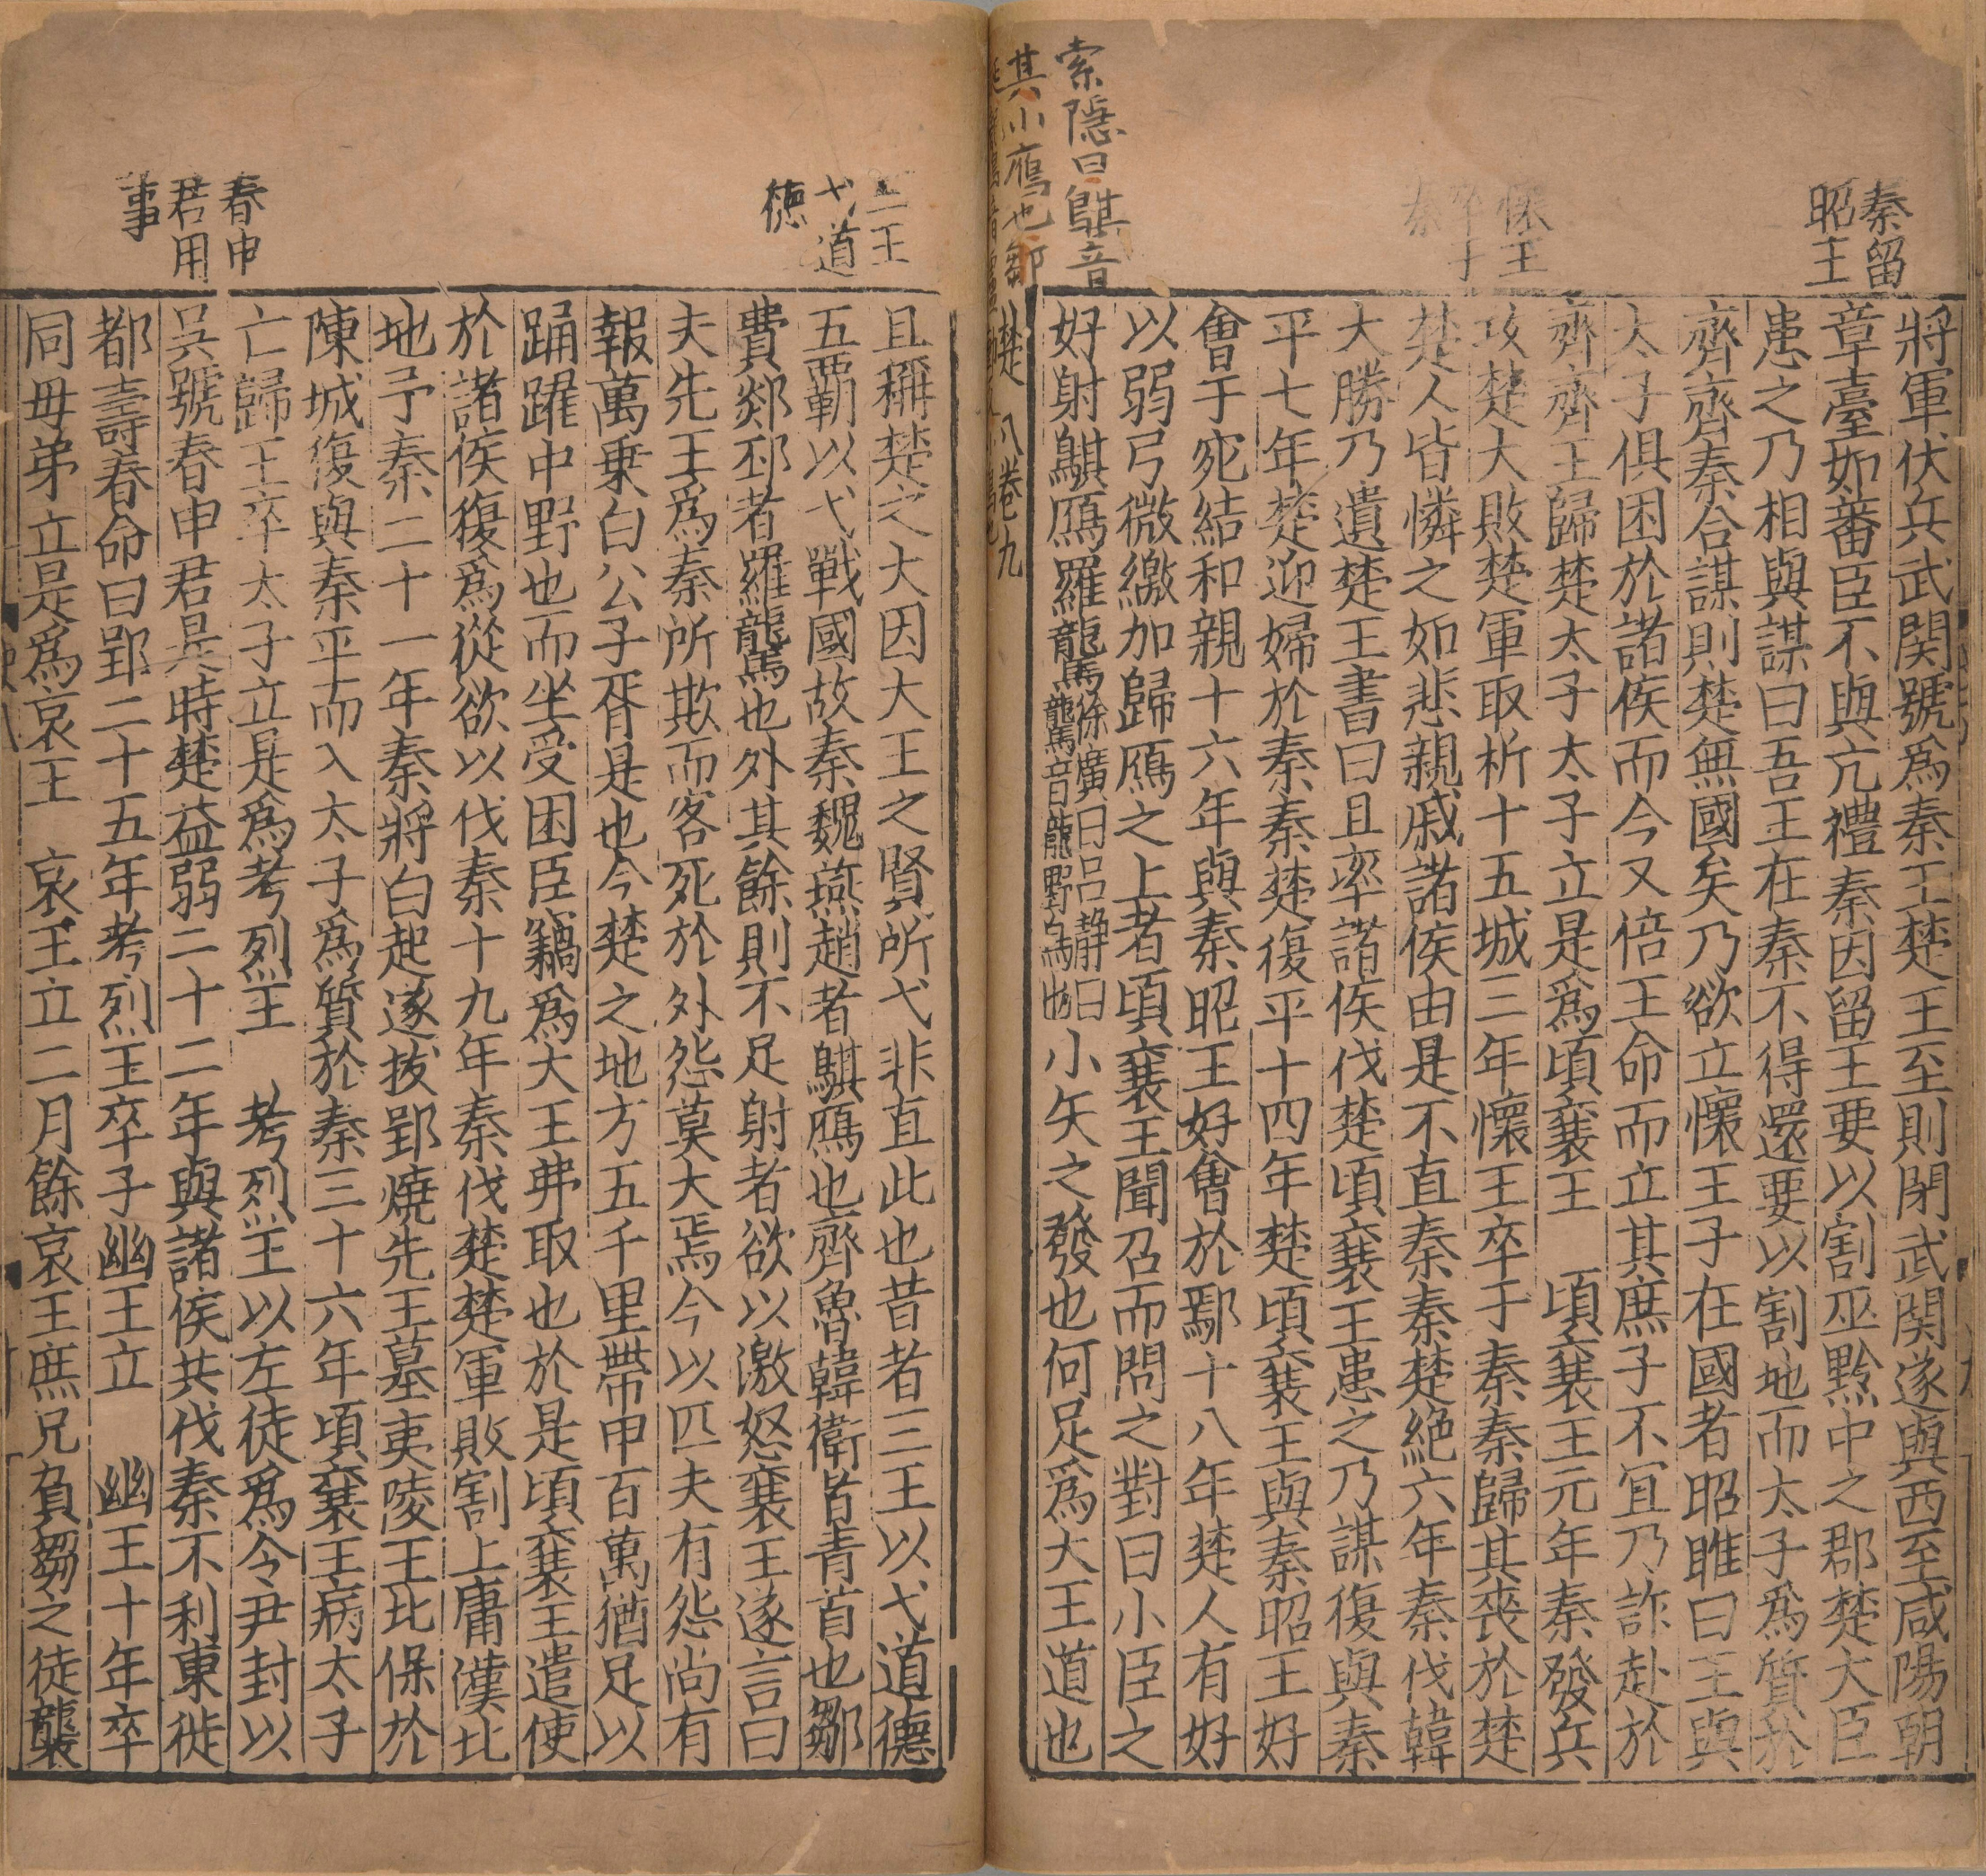 秦留
昭王
懷王
卒子
秦
索隱曰鶀音
其小鴈也鄒
將軍伏兵武関號爲秦王楚王至則閉武関遂與西至咸陽朝
章臺如蕃臣不與亢禮秦因留王要以割巫黔中之郡楚大臣
患之乃相與謀曰吾王在秦不得還要以割地而太子爲質於
齊齊秦合謀則楚無國矣乃欲立懷王子在國者昭睢曰王與
太子俱困於諸侯而今又倍王命而立其庶子不冝乃詐赴於
齊齊王歸楚太子太子立是爲頃襄王 頃襄王元年秦發兵
攻楚大敗楚軍取析十五城三年懷王卒于秦秦歸其喪於楚
楚人皆憐之如悲親戚諸侯由是不直秦秦楚絶六年秦伐韓
大勝乃遺楚王書曰且率諸侯伐楚頃襄王患之乃謀復與秦
平七年楚迎婦於秦秦楚復平十四年楚頃襄王與秦昭王好
會于宛結和親十六年與秦昭王好會於鄢十八年楚人有好
以弱弓微繳加歸鴈之上者頃襄王聞召而問之對曰小臣之
好射鶀鴈羅鸗徐廣曰吕静曰鸗音龍野鳥也小矢之發也何足爲大王道也
楚 八卷九
三王
弋道
徳
春申
君用
事
且稱楚之大因大王之賢所弋非直此也昔者三王以弋道德
五覇以弋戰國故秦魏燕趙者鶀鴈也齊魯韓衛皆青首也鄒
費郯邳者羅鸗也外其餘則不足射者欲以激怒襄王遂言曰
夫先王爲秦所欺而客死於外怨莫大焉今以匹夫有怨尚有
報萬乗白公子胥是也今楚之地方五千里帶甲百萬猶足以
踊躍中野也而坐受困臣竊爲大王弗取也於是頃襄王遣使
於諸侯復爲從欲以伐秦十九年秦伐楚楚軍敗割上庸漢北
地予秦二十一年秦將白起遂拔郢燒先王墓夷陵王北保於
陳城復與秦平而入太子爲質於秦三十六年頃襄王病太子
亡歸王卒太子立是爲考烈王 考烈王以左徒爲令尹封以
吳號春申君是時楚益弱二十二年與諸侯共伐秦不利東徙
都壽春命曰郢二十五年考烈王卒子幽王立 幽王十年卒
同毋弟立是爲哀王 哀王立二月餘哀王庶兄負芻之徒襲